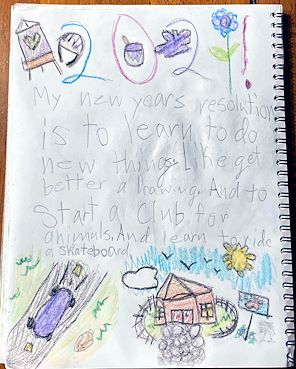 2021!
My new years resolution
is to learn to do
new things. Like get
better a drawing. And to
start a club, for
animals. And learn to ride
a skateboard